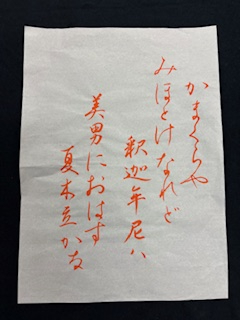 かまくらや
みほとけなれど
釈迦牟尼ハ
美男におはす
夏木立かな